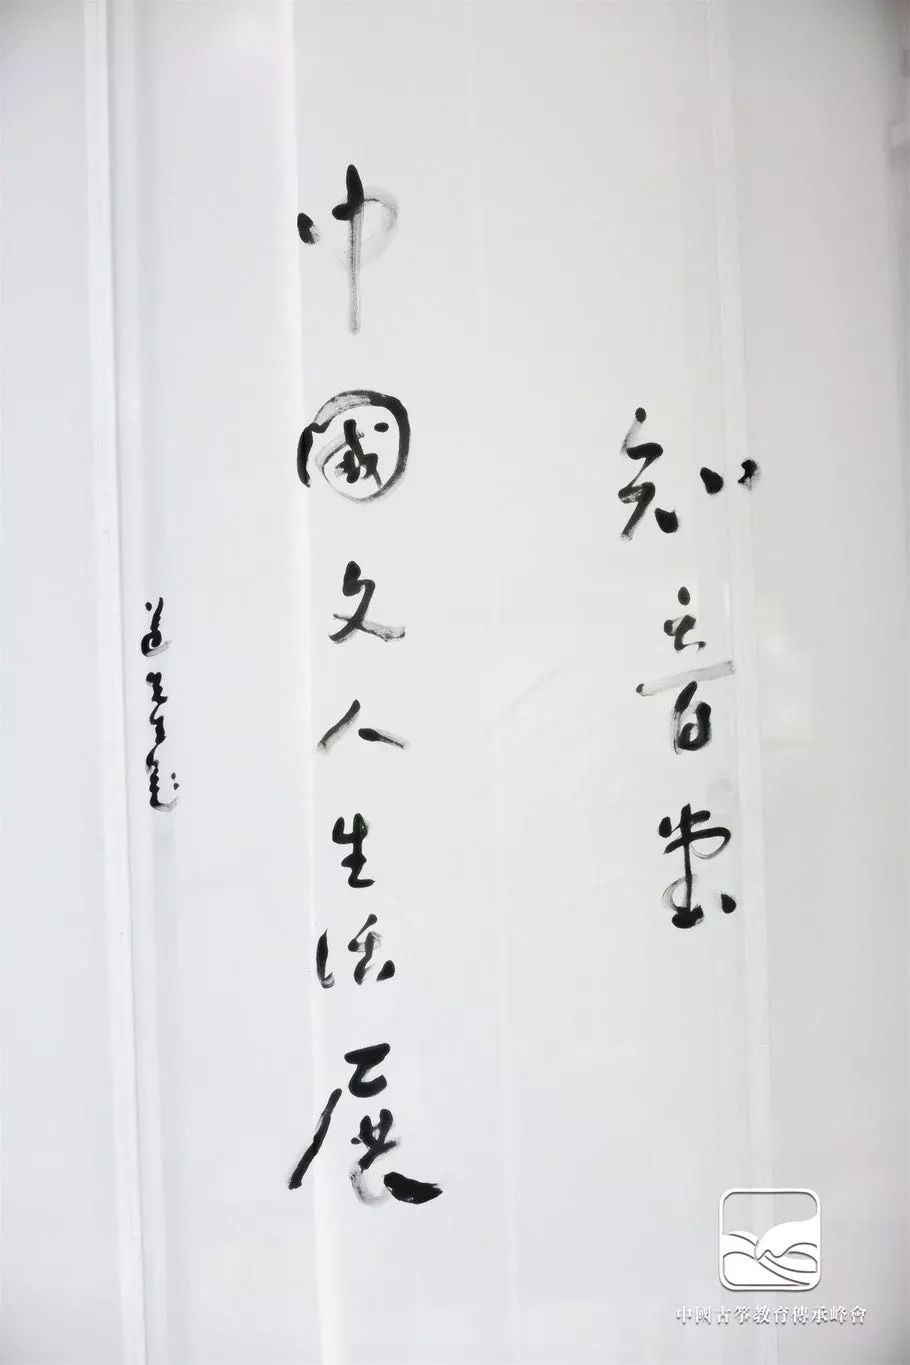 知音堂
中國文人生活展
中國古筝教育傳承峰會